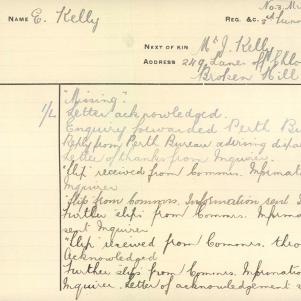 No. 3. M
NAME E. Kelly
REG. &C. 3rd
NEXT OF KIN Mr J. Kelly
ADDRESS 249 Lane
Broken Hill
1/2 "Missing."
Letter acknowledged.
Enquiry forwarded Perth B
Reply from Perth Bureau advising
Letter of thanks from Inquirer.
"Slip" received from Commrs. Information
Inquirer
"Slip from Commrs. Information sent
Further slips from Commrs. Informa
sent Inquirer
"Slip" received from Commrs.
Acknowledged
Further slips from Commrs. Information
Inquirer. Letter of acknowledgement